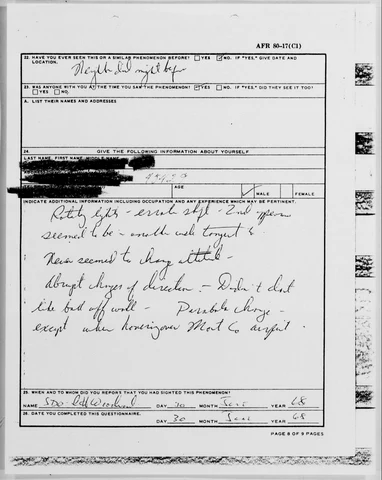 AFR 80-17(C1)
22. HAVE YOU EVER SEEN THIS OR A SIMILAR PHENOMENON BEFORE? □ YES ☑ NO. IF "YES," GIVE DATE AND
LOCATION.
Neighbor did night before
23. WAS ANYONE WITH YOU AT THE TIME YOU SAW THE PHENOMENON? ☑ YES □ NO. IF "YES," DID THEY SEE IT TOO?
□ YES □ NO.
A. LIST THEIR NAMES AND ADDRESSES
24. GIVE THE FOLLOWING INFORMATION ABOUT YOURSELF
LAST NAME, FIRST NAME, MIDDLE NAME
AGE
MALE □ FEMALE
INDICATE ADDITIONAL INFORMATION INCLUDING OCCUPATION AND ANY EXPERIENCE WHICH MAY BE PERTINENT.
Rotating lights - - 2nd
seemed to be - tangent to -
Never seemed to change altitude -
Abrupt changes of direction - Didn't dart
like ball off wall - Parabola change -
except when hovering over Mont Co airport.
25. WHEN AND TO WHOM DID YOU REPORT THAT YOU HAD SIGHTED THIS PHENOMENON?
NAME SDO DAY 30 MONTH June YEAR 68
26. DATE YOU COMPLETED THIS QUESTIONNAIRE.
DAY 30 MONTH June YEAR 68
PAGE 8 OF 9 PAGES